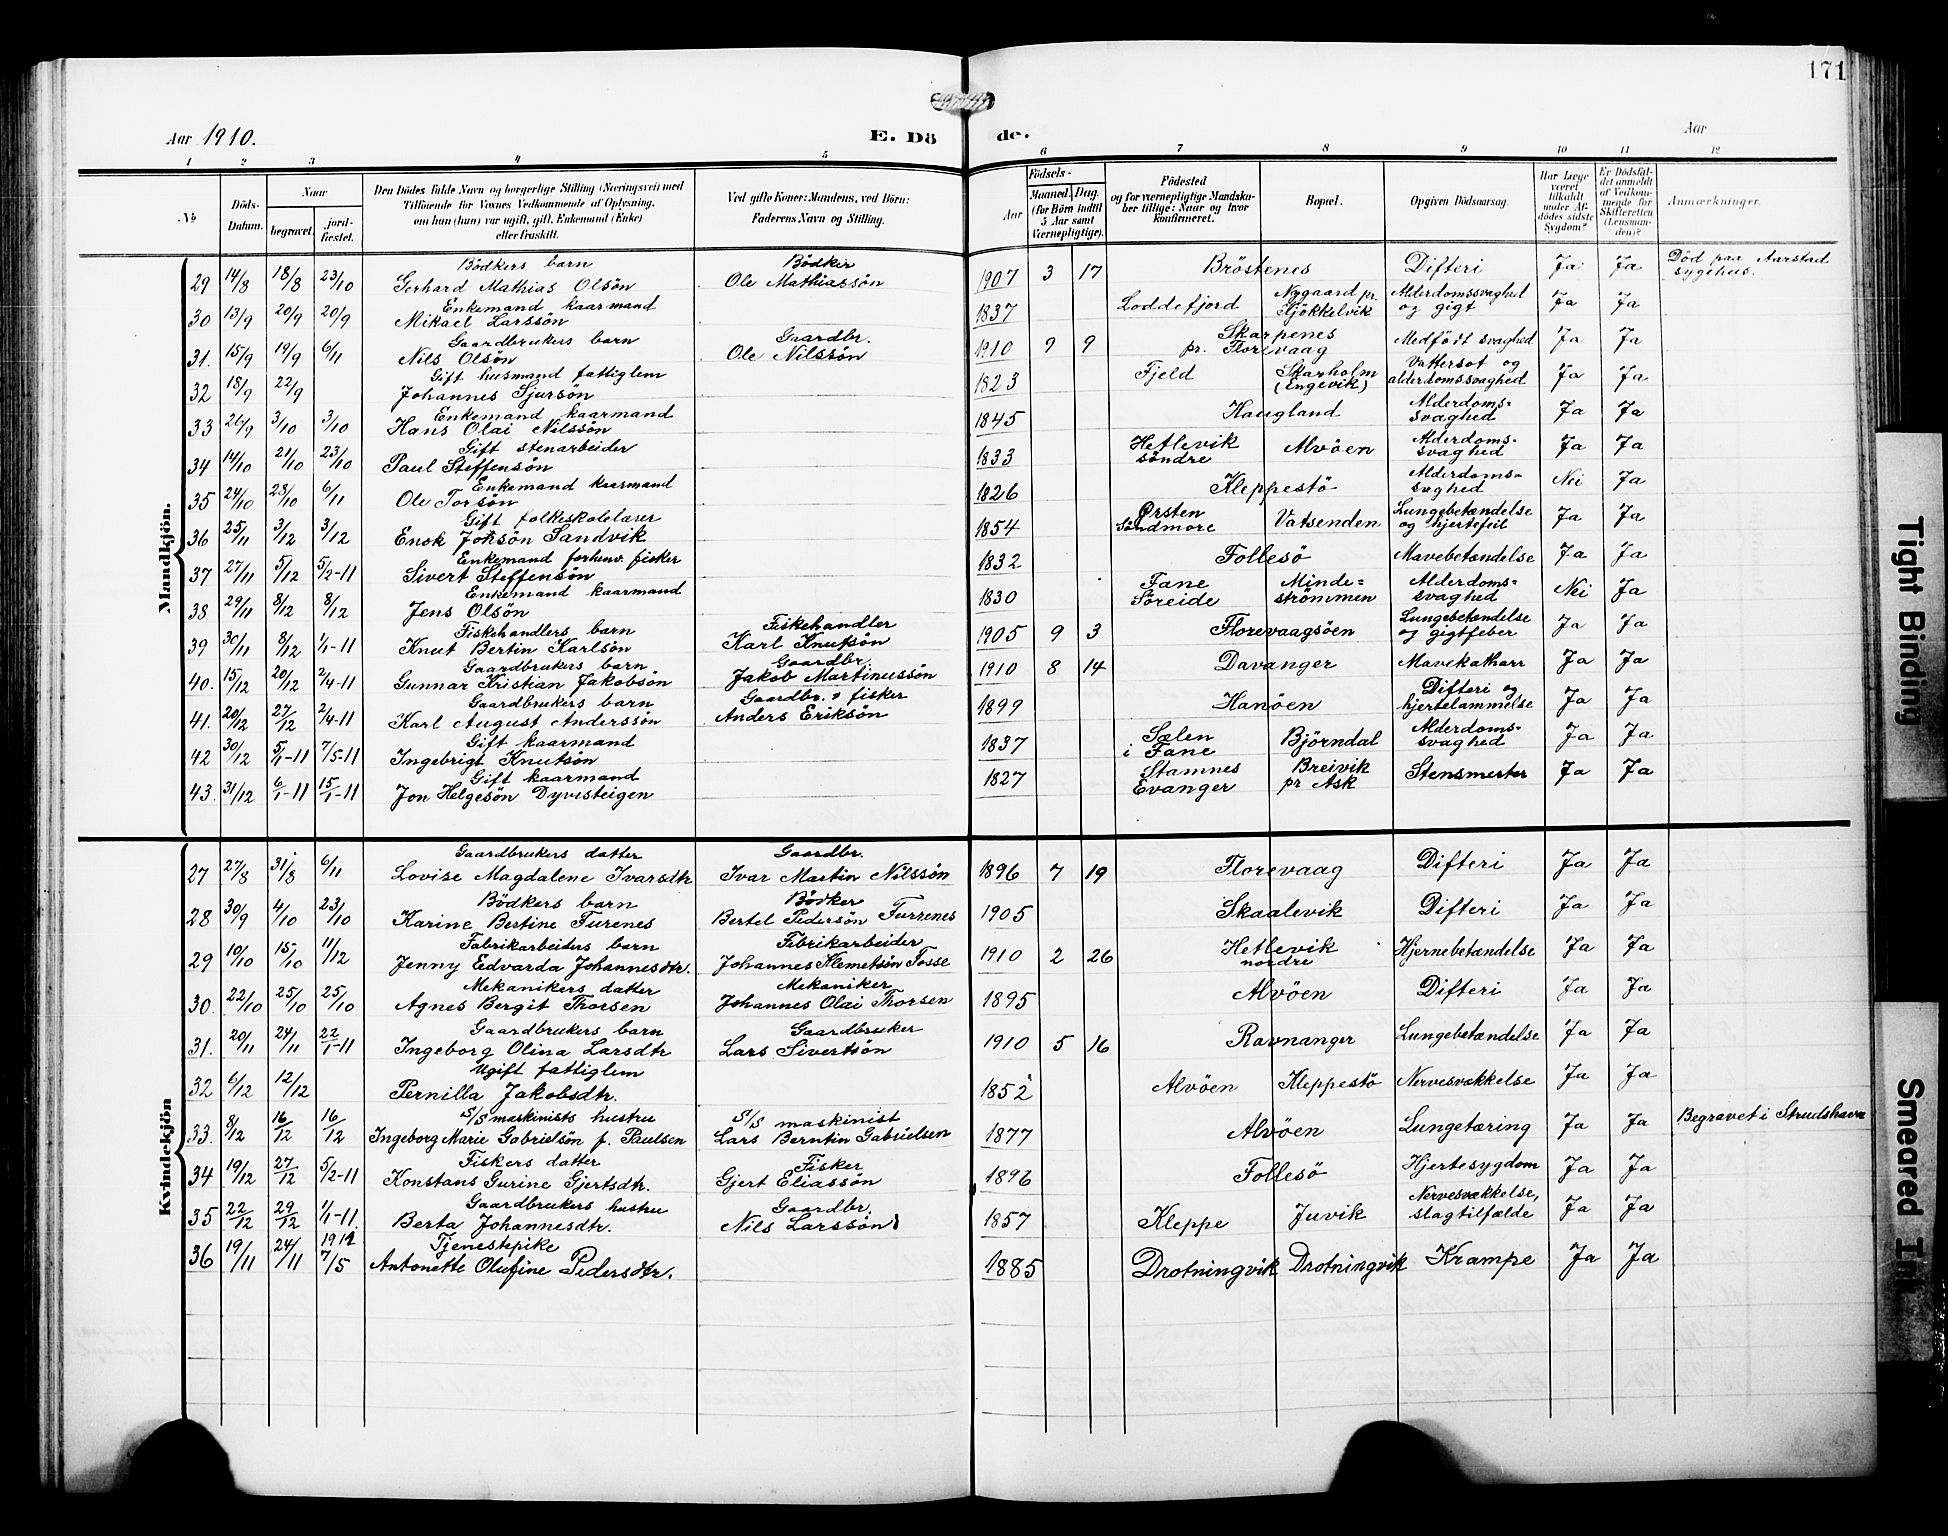 171
Aar 1910.
E. Dö de.
Aar
1 2 3 4 5 6 7 8 9 10 11 12
No
Döds-Datum.
Naar
begravet.
jord-fæstet.
Den Dödes fulde Navn og borgerlige Stilling (Næringsvei) med
Tilföiende for Voxnes Vedkommende af Oplysning,
om hun (han) var ugift, gift, Enkemand (Enke)
eller fraskilt.
Ved gifte Koner: Mandens, ved Börn:
Faderens Navn og Stilling.
Födsels-
Aar
Maaned. Dag.
(for Börn indtil
5 Aar samt
Værnepligtige).
Födested
og for værnepligtige Mandska-
ber tillige: Naar og hvor
konfirmeret.
Bopæl.
Opgiven Dödsaarsag.
Har Læge
været
tilkaldt
under Af-
dödes sidste
Sygdom?
Er Dödsfal-
det anmeldt
af Vedkom-
mende for
Skifteretten
(Lensman-
den)?
Anmærkninger.
Mandkjön.
29 14/8 18/8 23/10 Bödkers barn Gerhard Mathias Olsön Bödker Ole Mathiassön 1907 3 17 Bröstenes Difteri Ja Ja Död paa Aarstad sygehus.
30 13/9 20/9 20/9 Enkemand kaarmand Mikael Larssön 1837 Loddefjord Nygaard pr. Hjökkelvik Alderdomssvaghed og gigt Ja Ja
31. 15/9 19/9 6/11 Gaardbrukers barn Nils Olsön Gaardbr. Ole Nilssön 1910 9 9 Skarpenes pr. Florevaag Medfödt svaghed Ja Ja
32 18/9 22/9 Gift husmand fattiglem Johannes Sjursön 1823 Fjeld Skarholm (Engevik) Vattersot og alderdomssvaghed Ja Ja
33 26/9 3/10 3/10 Enkemand kaarmand Hans Olai Nilssön 1845 Haugland Alderdoms=svaghed Ja Ja
34 14/10 21/10 23/10 Gift stenarbeider Paul Steffensön 1833 Hetlevik söndre Alvöen Alderdoms=svaghed Ja Ja
35 24/10 28/10 6/11 Enkemand kaarmand Ole Torsön 1826 Kleppestö Alderdoms=svghed Nei Ja
36 25/11 3/12 3/12 Gift folkeskolelærer Enok Jonsön Sandvik 1854 Örsten Söndmöre Vatsenden Lungebetændelse og hjertefeil Ja Ja
37 27/11 5/12 5/2-11 Enkemand forhenv. fisker Sivert Steffensön 1832 Follesö Mavebetændelse Ja Ja
38 29/11 8/12 8/12 Enkemand kaarmand Jens Olsön 1830 Fane Söreide Minde=strömmen Alderdoms=svaghed Nei Ja
39 30/11 8/12 1/1-11 Fiskehandlers barn Knut Bertin Karlsön Fiskehandler Karl Knutsön 1905 9 3 Florevaagsöen Lungebetændelse og gigtfeber Ja Ja
40. 15/12 20/12 2/4-11 Gaardbrukers barn Gunnar Kristian Jakobsön Gaardbr. Jakob Martinussön 1910 8 14 Davanger Mavekatharr Ja Ja
41. 20/12 27/12 2/4-11 Gaardbrukers barn Karl August Anderssön Gaardbr. & fisker Anders Eriksön 1899 Hanöen Difteri og hjertelammelse Ja Ja
42 30/12 5/1-11 7/5-11 Gift kaarmand Ingebrigt Knutsön 1837 Sælen i Fane Björndal Alderdoms=svaghed Ja Ja
43. 31/12 6/1-11 15/1-11 Gift kaarmand Jon Helgesön Dyvesteigen 1827 Stamnes Evanger Breivik pr Ask Stensmerter Ja Ja
Kvindekjön
27 27/8 31/8 6/11 Gaardbrukers datter Lovise Magdalene Ivarsdtr Gaardbr. Ivar Martin Nilssön 1896 7 19 Florevaag Difteri Ja Ja
28 30/9 4/10 23/10 Bödkers barn Karine Bertine Turenes Bödker Bertel Pedersön Turrenes 1905 Skaalevik Difteri Ja Ja
29 10/10 15/10 11/12 Fabrikarbeiders barn Jenny Edvarda Johannesdtr. Fabrikarbeider Johannes Klemetsön Tosse 1910 2 26 Hetlevik nordre Hjernebetændelse Ja Ja
30. 22/10 25/10 25/10 Mekanikers datter Agnes Bergit Thorsen Mekaniker Johannes Olai Thorsen 1895 Alvöen Difteri Ja Ja
31. 20/11 24/11 22/1-11 Gaardbrukers barn Ingeborg Olina Larsdtr Gaardbruker Lars Sivertsön 1910 5 16 Ravnanger Lungebetændelse Ja Ja
32 6/12 12/12 Ugift fattiglem Pernilla Jakobsdtr. 1852 Alvöen Kleppestö Nervesvækkelse Ja Ja
33. 8/12 16/12 16/12 S/S maskinists hustru Ingeborg Marie Gabrielsön f. Paulsen S/S maskinist Lars Berntin Gabrielsen 1877 Alvöen Lungetæring Ja Ja Begravet i Strudshavn
34 19/12 27/12 5/2-11 Fiskers datter Konstans Gurine Gjertsdtr. Fisker Gjert Eliassön 1896 Follesö Hjertesygdom Ja Ja
35 22/12 29/12 1/1-11. Gaardbrukers hustru Berta Johannesdtr. Gaardbr. Nils Larssön 1857 Kleppe Juvik Nervesvækkelse, slagtilfælde Ja Ja
36 19/11 24/11 1911 7/5 Tjenestepike Antonette Olufine Pedersdtr. 1885 Drotningvik Drotningvik Krampe Ja Ja
Tight Binding
Smeared Ink